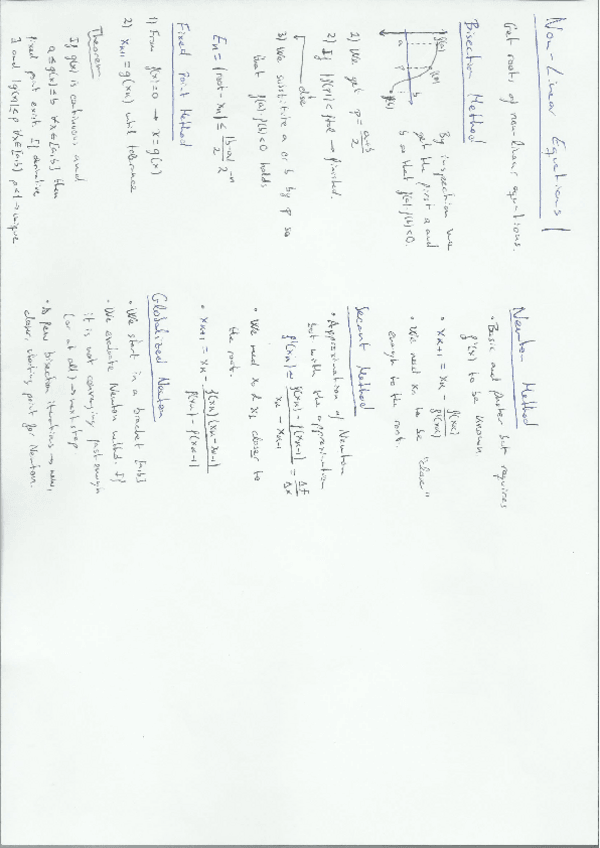 Non-Linear Equations |
Get roots of non-linear equations.
Bisection Method
f(a)
f(p)
f(b)
a
p
b
By inspection we
get the first a and
b so that f(a)·f(b)<0.
1) We get p = a+b/2
2) If |f(p)| < ftol → finished.
else
3) We substitute a or b by p so
that f(a)·f(b)<0 holds
En = |root - xn| ≤ |b-a|/2 2^-n
Fixed Point Method
1) From f(x)=0 → x = g(x)
2) xn+1 = g(xn) until tolerance
Theorem
If g(x) is continuous and
a ≤ g(x) ≤ b ∀x∈[a,b] then
fixed point exists. If derivative
∃ and |g'(x)|<p ∀x∈[a,b] p<1 → unique
Newton Method
• Basic and faster but requires
f'(x) to be known
• xn+1 = xn - f(xn)/f'(xn)
• We need xn to be "close"
enough to the root.
Secant Method
• Approximation of Newton
but with the approximation
f'(xn) ≈ f(xn) - f(xn-1)/xn - xn-1 = Δf/Δx
• We need x0 & x1 closer to
the root.
• xn+1 = xn - f(xn)(xn-xn-1)/f(xn)-f(xn-1)
Globalized Newton
• We start in a bracket [a,b]
• We evaluate Newton method. If
it is not converging fast enough
(or at all) → next step
• A few bisection iterations → new,
closer, starting point for Newton.